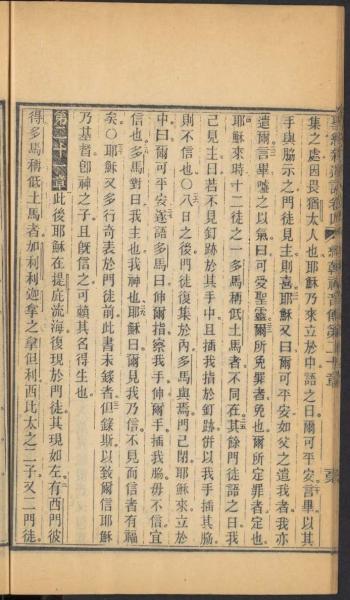 集之處因畏猶太人也耶穌乃來立於中語之曰爾可平安言畢以其
手與脇示之門徒見主則喜耶穌又曰爾可平安如父之遣我者我亦
遣爾言畢噓之以氣曰可受聖靈爾所免罪者免也爾所定罪者定也
耶穌來時十二徒之一多馬稱低土馬者不同在其餘門徒語之曰我
己見主曰若不見釘跡於其手中且插我指於釘跡併以我手插其脇
則不信也○八日之後門徒復集於內多馬與焉門己閉耶穌來立於
中曰爾可平安遂語多馬曰伸爾指察我手伸爾手插我脇毋不信宜
信也多馬對曰我主也我神也耶穌曰爾見我乃信不見而信者有福
矣○耶穌又多行奇表於門徒前此書未錄者但錄斯以致爾信耶穌
乃基督卽神之子且旣信之可賴其名得生也
第二十一章此後耶穌在提庇流海復現於門徒其現如左有西門彼
得多馬稱低土馬者加利利迦拿之拿但利西比太之二子又二門徒